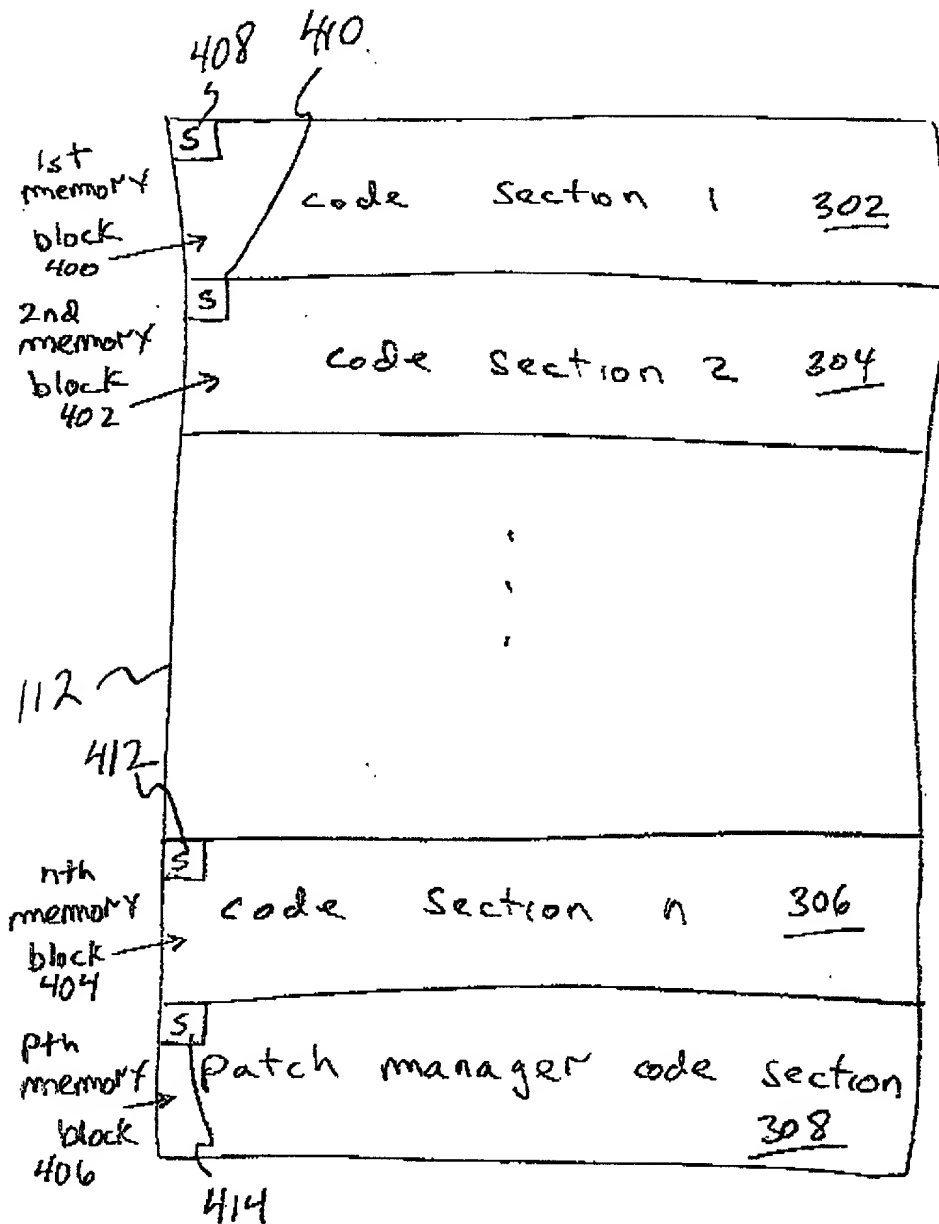 408 410
S
1st
memory
block
400
code Section 1 302
S
2nd
memory
block
402
code Section 2 304
112
412
S
nth
memory
block
404
code Section n 306
S
pth
memory
block
406
Patch manager code section
308
414